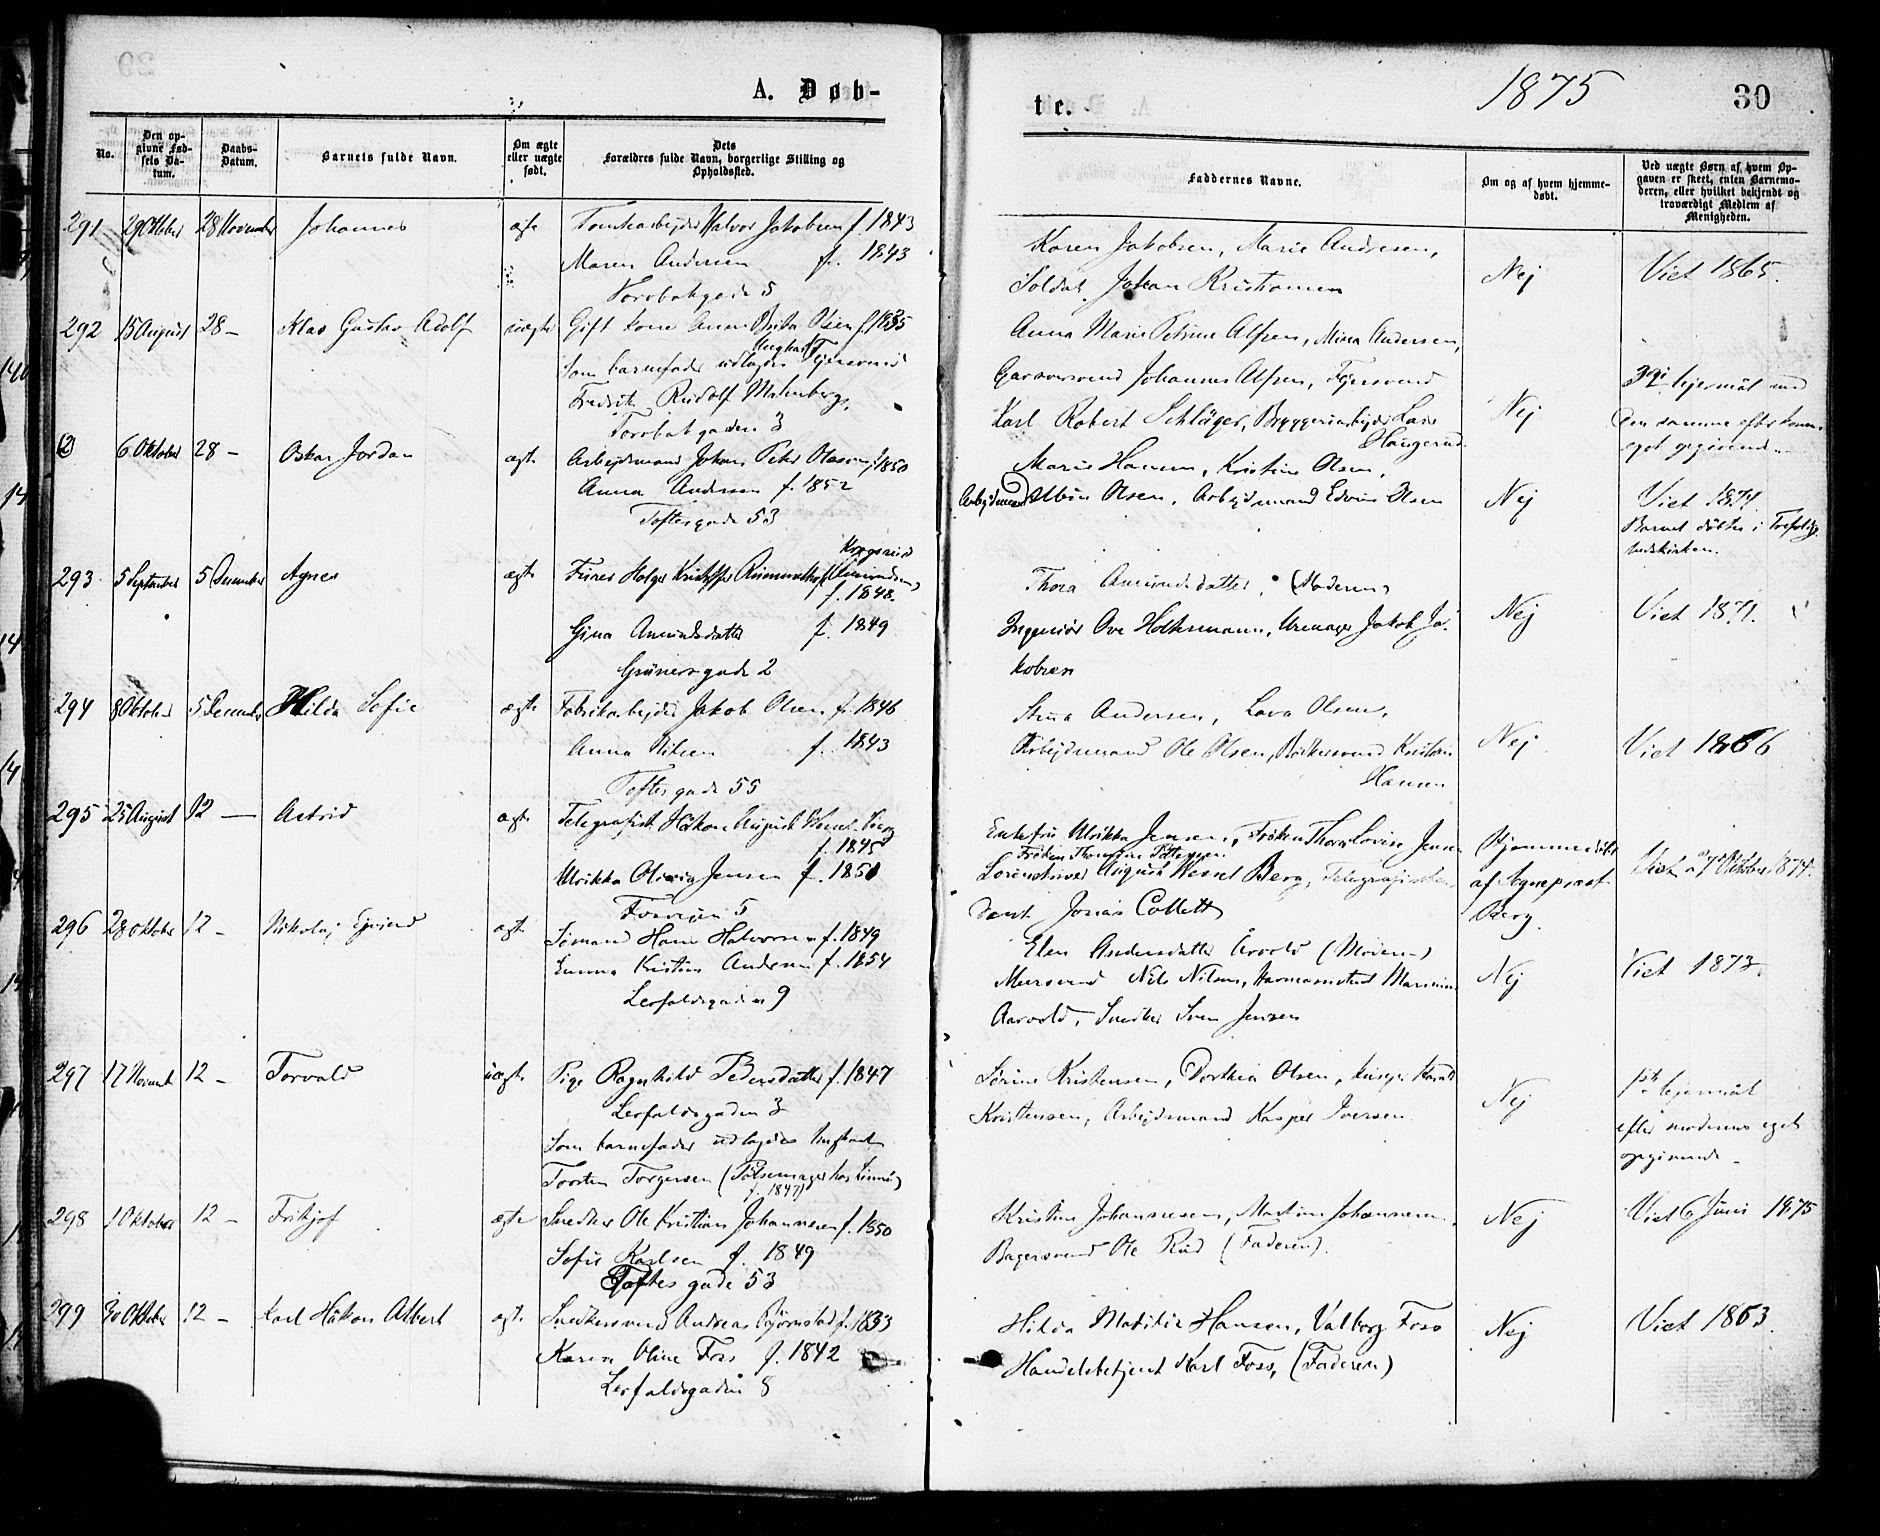 A. Døb-
te.
1875
30
No.
Den op-
givne Fød-
sels Da-
tum.
Daabs-
Datum.
Barnets fulde Navn.
Om ægte
eller uægte
født.
Dets
Forældres fulde Navn, borgerlige Stilling og
Opholdssted.
Faddernes Navne.
Om og af hvem hjemme-
døbt.
Ved uægte Børn af hvem Op-
gaven er skeet, enten Barnemo-
deren, eller hvilket bekjendt og
troværdigt Medlem af
Menigheden.
291 29 Oktober 28 November Johannes ægte Tomtearbejder Halvor Jakobsen f. 1843
Maren Andersen f. 1843
Torvbakgade 5
Karen Jakobsen, Marie Andresen,
Soldat Johan Kristiansen
Nej
Viet 1865.
292 15 August 28 - Klas Gustav Adolf uægte Gift kone Anne Olsen f. 1835
Som barnefader udlagdes Ungkarl
Fredrik Rudolf Malmberg,
Torvbakgaden 3
Anna Marie Petrine Alfsen, Mina Andersen,
Garversvend Johannes Alfsen,
Karl Robert Schläger, Bryggeriarbejder Lars
Haugerud
Nej
lejermål med
den samme efter konens
eget opgivende
(2) 6 Oktober 28 - Oskar Jordan ægte Arbejdsmand Johan Peter Olsen f. 1850
Anna Andersen f. 1852
Toftesgade 53
Marie Hansen, Kristine Olsen,
Arbejdsmand Albin Olsen, Arbejdsmand Edvin Olsen
Nej
Viet 1874.
Barnet døbtes i Trefoldig-
hedskirken.
293 5 September 5 December Agnes ægte Furer Holger Kristoffer
f. 1848.
Gina Amundsdatter f. 1849
Grünersgade 2
Thora Amundsdatter, (Moderen)
Ingeniør Ove Holtermann, Urmager Jakob Ja-
kobsen
Nej
Viet 1871.
294 8 Oktober 5 December Hilda Sofie ægte Fabrikarbejder Jakob Olsen f. 1846
Anna Nilsen f. 1843
Toftesgade 55
Stina Andersen, Lava Olsen,
Arbejdsmand Ole Olsen, Kristian
Hansen
Nej
Viet 1866
295 25 August 12 — Astrid ægte Telegrafist Håkon August Wessel Berg
f. 1845
Ulrikka Olivia Jensen f. 1851
5
Enkefru Ulrikka Jensen, Frøken Thora Lovise Jensen
Frøken Thomsine Pettersen.
Sorenskriver August Wessel Berg,
Jonas Collett
Hjemmedøbt
af Sogneprest
Berg.
Viet 27 Oktober 1874.
296 28 Oktober 12 - Nikolaj Ejvind ægte Sømand Hans Halvorsen f. 1849
Emma Kristine Andersen f. 1854
Lerfaldsgaden 9
Elen Andersdatter Årvold (Moderen)
Mursvend Nils Nilsen,
Aarvold, Snedker Sven Jensen
Nej
Viet 1873.
297 17 Novemb 12 - Torvald uægte Pige Ragnhild Pedersdatter f. 1847
Lerfaldsgaden 3
Som barnefader udlagdes Ungkarl
Torsten Torgersen (Pølsemager hos
f. 1847)
Sørine Kristensen, Dorthea Olsen,
Kristensen, Arbejdsmand Kasper Iversen
Nej
1ste lejermål
efter moderens eget
opgivende -
298 1 Oktober 12 - Fritjof ægte Snedker Ole Kristian Johannesen f. 1850
Sofie Karlsen f. 1849
Toftesgade 53
Kristine Johannesen, Martine Johannesen,
Bagersvend Ole Rud (Faderen).
Nej
Viet 6 Juni 1875
299 30 Oktober 12 - Karl Håkon Albert ægte Snedkersvend Andreas Bjørnstad f. 1833
Karen Oline Foss f. 1842
Lerfaldsgaden 8
Hilda Matilde Hansen, Valborg Foss
Handelsbetjent Karl Foss, (Faderen)
Nej
Viet 1863.